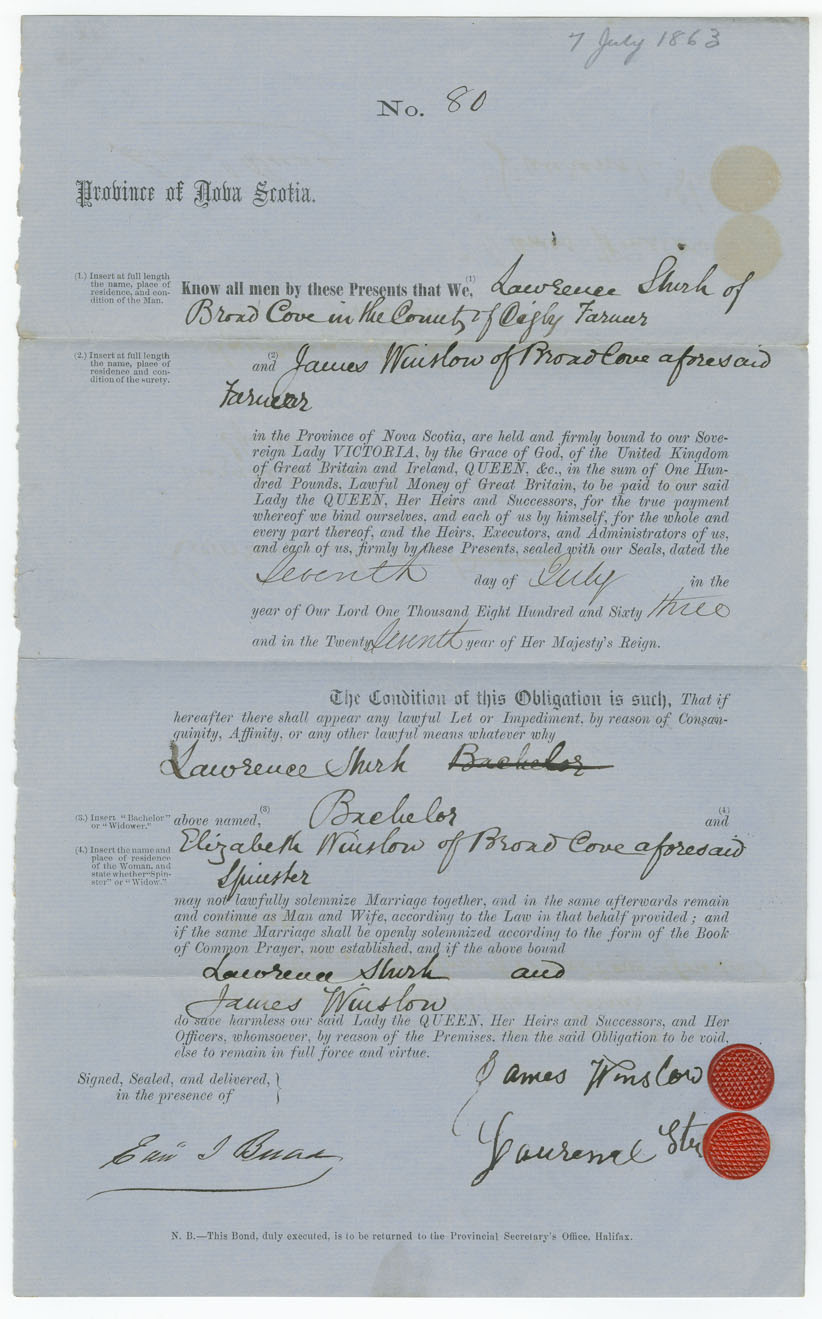 7 July 1863
No. 80
Province of Nova Scotia.
(1.) Insert at full length
the name, place of
residence, and con-
dition of the Man.
Know all men by these Presents that We, (1) Lawrence Shirk of
Broad Cove in the County of Digby Farmer
(2.) Insert at full length
the name, place of
residence and con-
dition of the surety.
and (2) James Winslow of Broad Cove aforesaid
Farmer
in the Province of Nova Scotia, are held and firmly bound to our Sove-
reign Lady VICTORIA, by the Grace of God, of the United Kingdom
of Great Britain and Ireland, QUEEN, &c., in the sum of One Hun-
dred Pounds, Lawful Money of Great Britain, to be paid to our said
Lady the QUEEN, Her Heirs and Successors, for the true payment
whereof we bind ourselves, and each of us by himself, for the whole and
every part thereof, and the Heirs, Executors, and Administrators of us,
and each of us, firmly by these Presents, sealed with our Seals, dated the
Seventh day of July in the
year of Our Lord One Thousand Eight Hundred and Sixty three
and in the Twenty Seventh year of Her Majesty's Reign.
The Condition of this Obligation is such, That if
hereafter there shall appear any lawful Let or Impediment, by reason of Consan-
guinity, Affinity, or any other lawful means whatever why
Lawrence Shirk Bachelor
(3.) Insert "Bachelor"
or "Widower."
above named, (3) Bachelor (4) and
(4.) Insert the name and
place of residence
of the Woman, and
state whether "Spin-
ster" or "Widow."
Elizabeth Winslow of Broad Cove aforesaid
Spinster
may not lawfully solemnize Marriage together, and in the same afterwards remain
and continue as Man and Wife, according to the Law in that behalf provided; and
if the same Marriage shall be openly solemnized according to the form of the Book
of Common Prayer, now established, and if the above bound
Lawrence Shirk and
James Winslow
do save harmless our said Lady the QUEEN, Her Heirs and Successors, and Her
Officers, whomsoever, by reason of the Premises, then the said Obligation to be void,
else to remain in full force and virtue.
Signed, Sealed, and delivered,
in the presence of
James Winslow
N. B.—This Bond, duly executed, is to be returned to the Provincial Secretary's Office, Halifax.